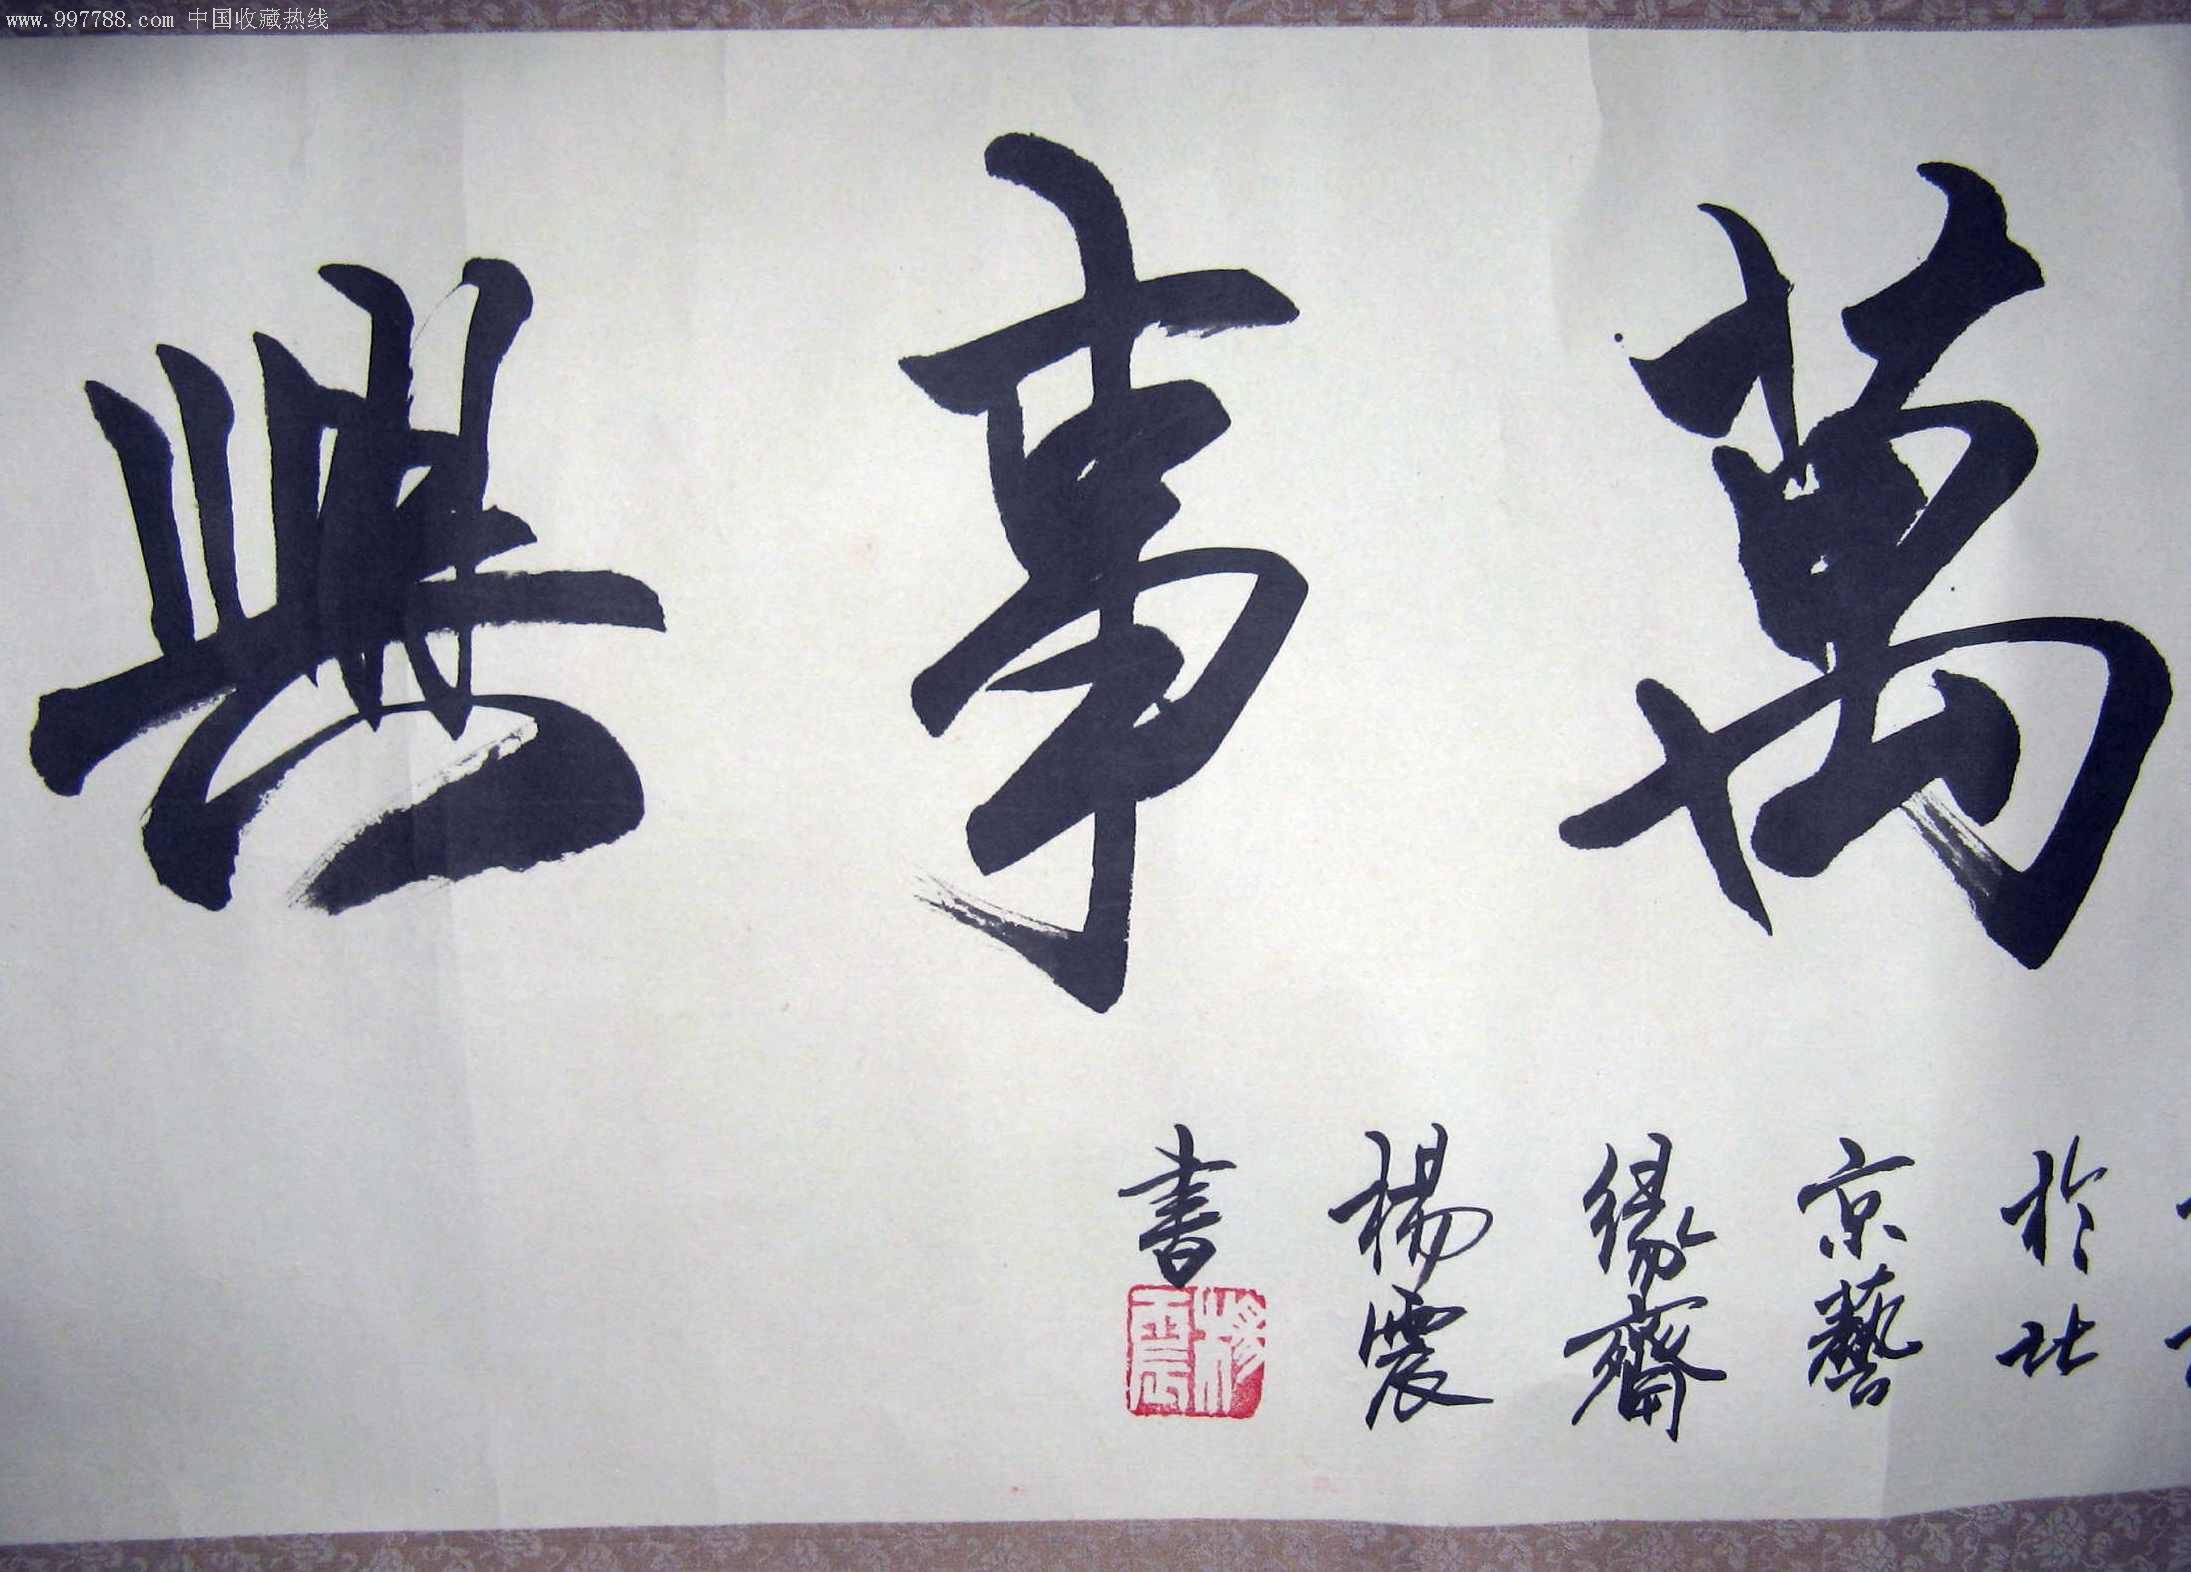 www.997788.com 中国收藏热线
萬事興
於北
京藝
緣齋
楊震
書
楊震